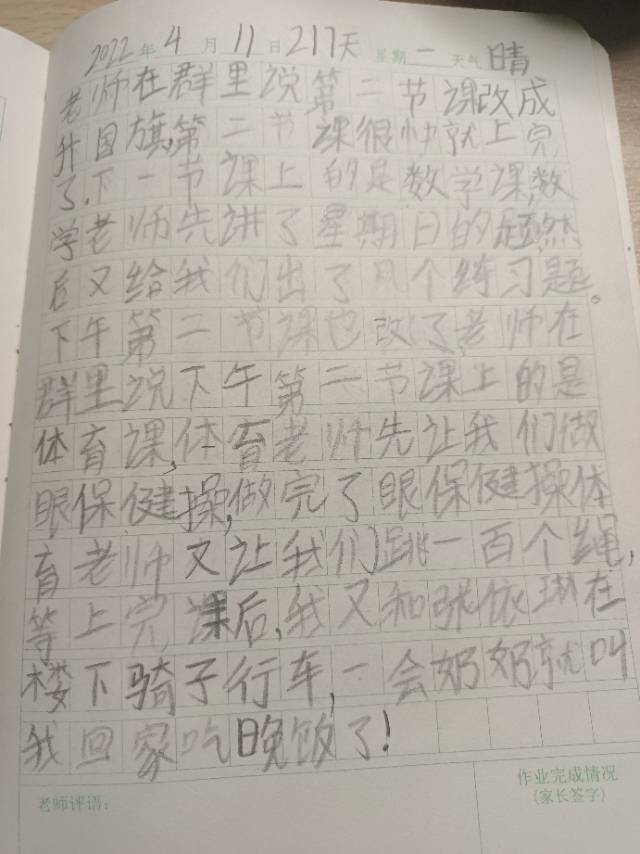 2022年4月11日217天 星期一 天气晴
老师在群里说第二节课改成
升国旗,第二节课很快就上完
了.下一节课上的是数学课,数
学老师先讲了星期日的题,然
后又给我们出了几个练习题。
下午第二节课也改了,老师在
群里说下午第二节课上的是
体育课,体育老师先让我们做
眼保健操,做完了眼保健操体
育老师又让我们跳一百个绳,
等上完课后,我又和张依琳在
楼下骑子行车,一会奶奶就叫
我回家吃晚饭了!
老师评语:
作业完成情况
(家长签字)